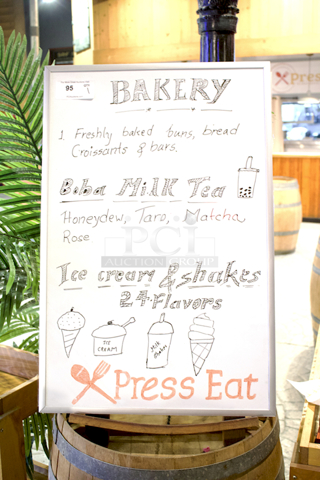 95
BAKERY
1. Freshly baked buns, bread
Croissants & bars.
Boba Milk Tea
Honeydew, Taro, Matcha
Rose
PCI
AUCTION GROUP
Ice cream & shakes
24 Flavors
ICE
CREAM
Milk
Shakes
XPress Eat
Xpress